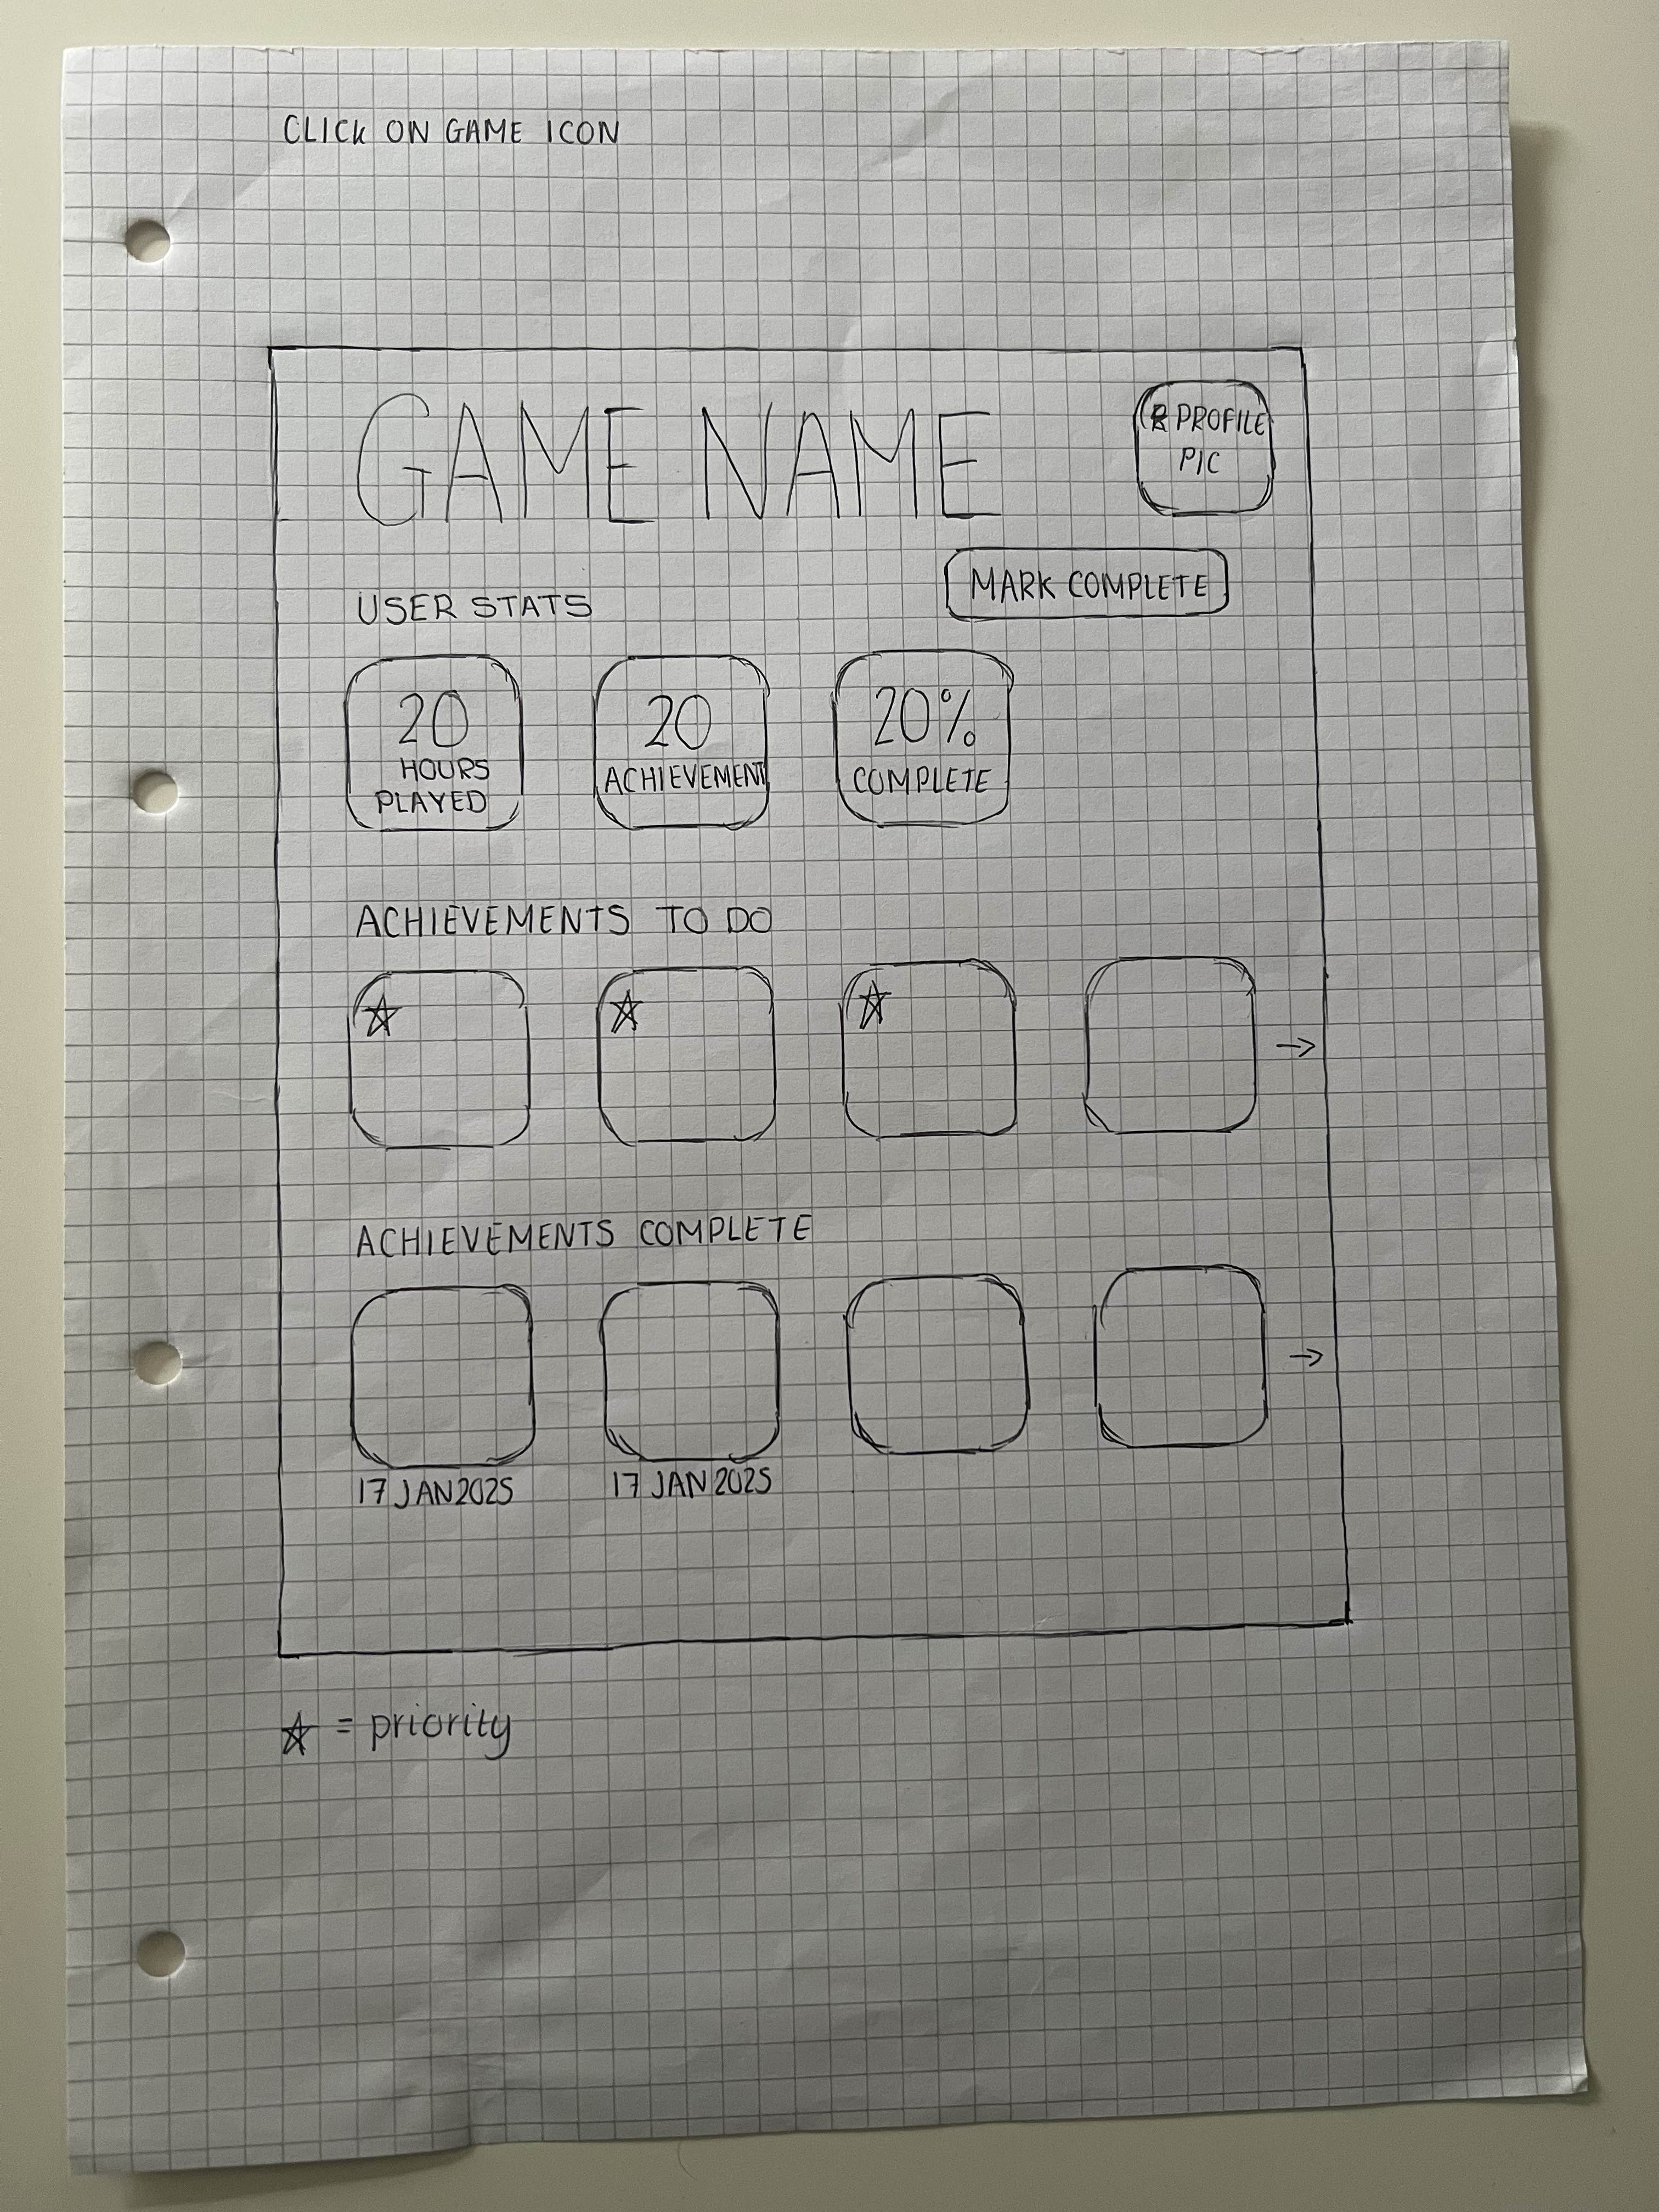 CLICK ON GAME ICON
GAME NAME
PROFILE
PIC
MARK COMPLETE
USER STATS
20
HOURS
PLAYED
20
ACHIEVEMENT
20%
COMPLETE
ACHIEVEMENTS TO DO
→
ACHIEVEMENTS COMPLETE
→
17 JAN 2025
17 JAN 2025
☆ = priority